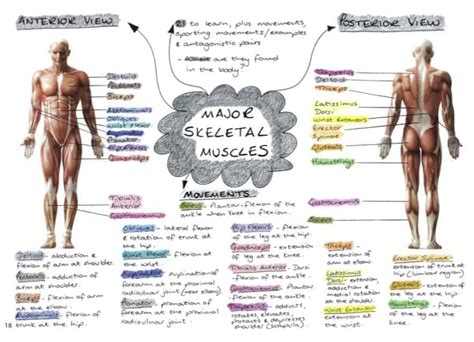 ANTERIOR VIEW
to learn, plus movements,
sporting movements/examples
& antagonistic pairs
- are they found
in the body?
POSTERIOR VIEW
Deltoid
Pectorals
Biceps
Abdominals
Obliques
Wrist Flexors
Supinator
Pronator
Hip Flexors
Quadriceps
Tibialis
Anterior
Gastrocnemius
MAJOR
SKELETAL
MUSCLES
Trapezius
Deltoid
Triceps
Latissimus
Dorsi
Wrist Extensors
Erector
Spinae
Gluteals
Hamstrings
Gastrocnemius
Soleus
MOVEMENTS
Soleus - Plantar-flexion of the
ankle when knee in flexion.
Deltoid - abduction &
flexion of arm at shoulder.
Pectorals - adduction of
arm at shoulder.
Biceps - flexion of arm
at the elbow.
flexion of
trunk at the hip.
Obliques - lateral flexion
& rotation of trunk at
the hip.
Wrist Flexors - flexion of
the wrist.
Supinator - supination of
forearm at the proximal
radioulnar joint (near elbow).
Pronator - pronation of
forearm at the proximal
radioulnar joint
Hip Flexors - flexion of
the leg at the hip.
Quadriceps - extension
of leg at the knee.
Tibialis Anterior - Dorsi-
flexion of the ankle.
Gastrocnemius - Plantar-
flexion of the ankle.
Trapezius - elevates,
retracts, and depresses
shoulder (scapula).
Triceps -
extension of
arm at the elbow.
Latissimus
Dorsi - extension,
adduction &
medial rotation
of arm at
the shoulder.
Wrist Extensors
- extension of
the wrist.
Erector Spinae -
extension of trunk
at hip (lumbar region)
Gluteals - extension
of leg at the hip.
Hamstrings -
flexion of leg at
the knee.
18